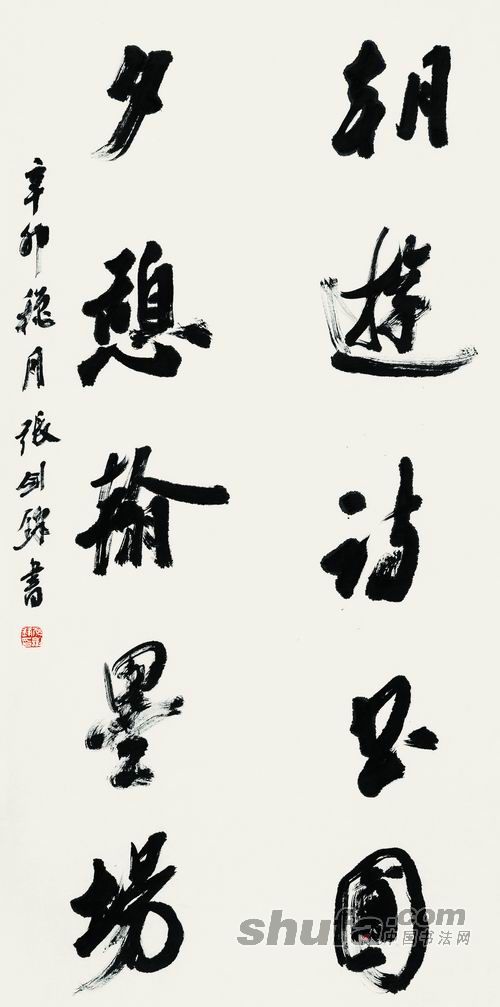 朝遊诗书圃
夕憩翰墨場
辛卯秋月張剑鋒書
shufa.com
中国书法网